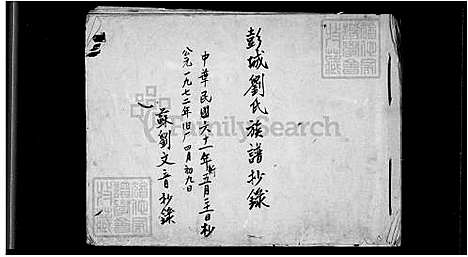 彭城劉氏族譜抄錄
中華民國六十一年新五月二十一日抄
公元一九七二年旧厂四月初九日
蘇劉文音抄錄
FamilySearch